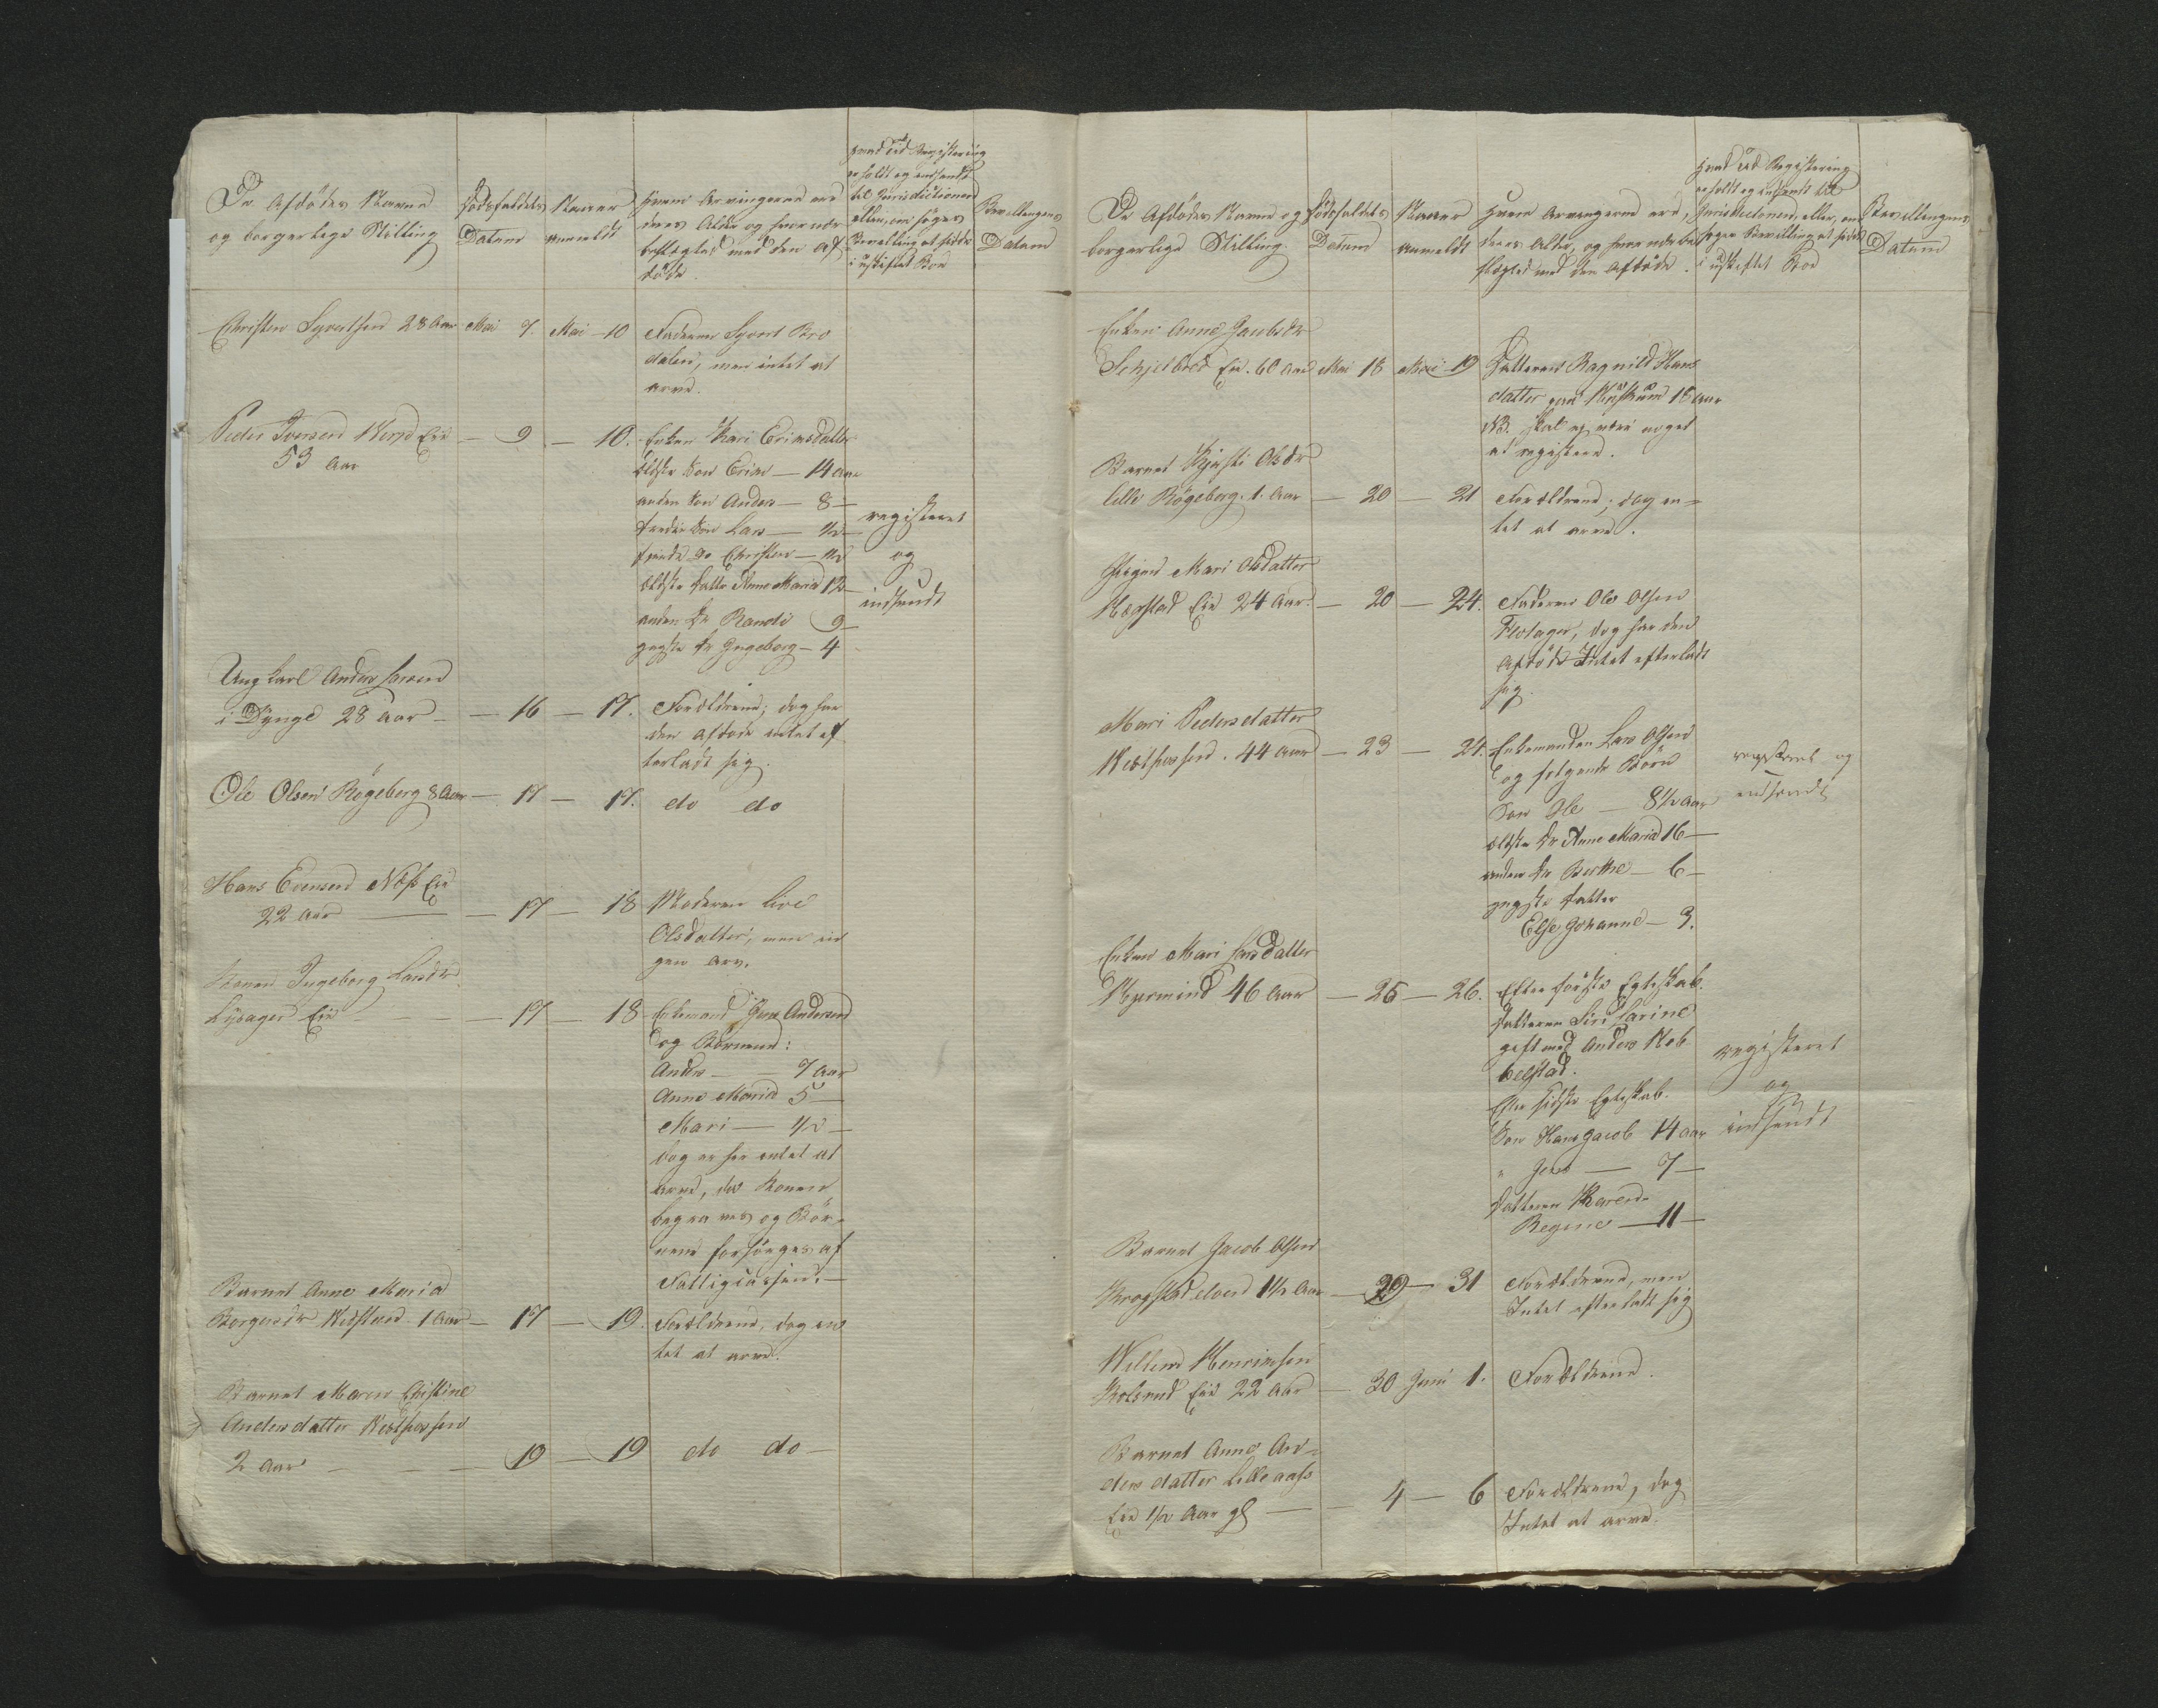 De Afdødes Navne
og borgerlige Stilling
Dødsfaldets
Datum
Naar
anmeldt
Hvem Arvingerne ere
deres Alder og hvor nær
beslægted med den Af
døde.
hvad ved Registering
er holdt og indsendt
til Jurisdictionen
eller, om søges
Bevilling at sidde
i uskiftet Boe
Bevillingens
Datum
Christen Syvertsen 28 Aar Mai 7. Mai 10 Faderen Syvert Bro
dalen, men intet at
arve.
Peder Iversen Eie — 9 — 10. Enken Kari Erimsdatter
53 Aar
ældste Søn — 14 Aar
anden Søn Anders — 8 —
tredie Søn Lars — 1/2 —
fjerde do Christen — 1/2
ældste Datter Anne Maria 12 —
anden Dr Randi 9 —
yngste Dr Ingeborg — 4
registeret
og
indsendt
Ung Karl Anders
i Dynge 28 Aar — — 16 — 17. Forældrene; dog har
den Afdøde intet ef
terladt sig.
Ole Olsen Røgeberg 8 Aar — 17 — 17. do do
Hans Evensen Næss Eie
22 Aar — — 17 — 18 Moderen Live
Olsdatter, men in
gen Arv.
Konen Ingeborg Larsdr
Eie — — 17 — 18 Enkemand Jens Andersen
og Børnene:
Anders — — 7 Aar
Anne Maria 5 —
Mari — 1/2 —
dog er her intet at
arve, da Konen
begraves og Bør-
nene forsørges af
Fattigcassen. —
Barnet Anne Maria
Borgersdr 1 Aar — 17 — 19. Forældrene, dog in
tet at arve.
Barnet Maren Christine
Andersdatter Vestfossen
2 Aar — — — 19 — 19 do do —
De Afdødes Navne og
borgerlige Stilling.
Dødsfaldets
Datum
Naar
anmeldt
Hvem Arvingerne ere,
deres Alder, og hvor nær be
slægted med den Afdøde.
Hvad ved Registering
er holdt og indsendt til
Jurisdictionen, eller, om
søges Bevilling at sidde
i uskiftet Boe
Bevillingens
Datum
Enken Anne Jacobsdr
Schjelbred Eie. 60 Aar Mai 18 Mai 19 Datteren Ragnild Hans
datter 18 Aar
NB. skal ej være noget
at registere.
Barnet Kjersti Olsdr
lille Røgeberg. 1. Aar — 20 — 21 Forældrene; dog in=
tet at arve.
Pigen Mari Olsdatter
Eie 24 Aar. — 20 — 24. Faderen Ole Olsen
dog har den
Afdøde Intet efterladt
sig.
Mari Pedersdatter
Vestfossen. 44 Aar — 23 — 24. Enkemanden Lars Olsen
og følgende Børn
Søn Ole — 8 1/2 Aar
ældste Dr Anne Maria 16 —
anden Dr Berthe — 6 —
yngste Datter
Else Johanne — 3.
registeret og
indsendt
Enken Mari Larsdatter
46 Aar — 25 — 26. Efter første Egteskab.
Datteren Siri Carine
gift med Anders
Efter sidste Egteskab.
Søn Hans Jacob 14 Aar
" Jens — 7 —
Datteren Karen
Regine — 11 —
registeret
og
indsendt
Barnet Jacob Olsen
Krogstadelven 1 1/2 Aar — 29 — 31 Forældrene, men
Intet efterladt sig
Willem Henricksen
Eie 22 Aar — 30 Juni 1. Forældrene.
Barnet Anne An=
dersdatter Lilleaass
Eie 1/2 Aar gl — 4 — 6 Forældrene, dog
Intet at arve.